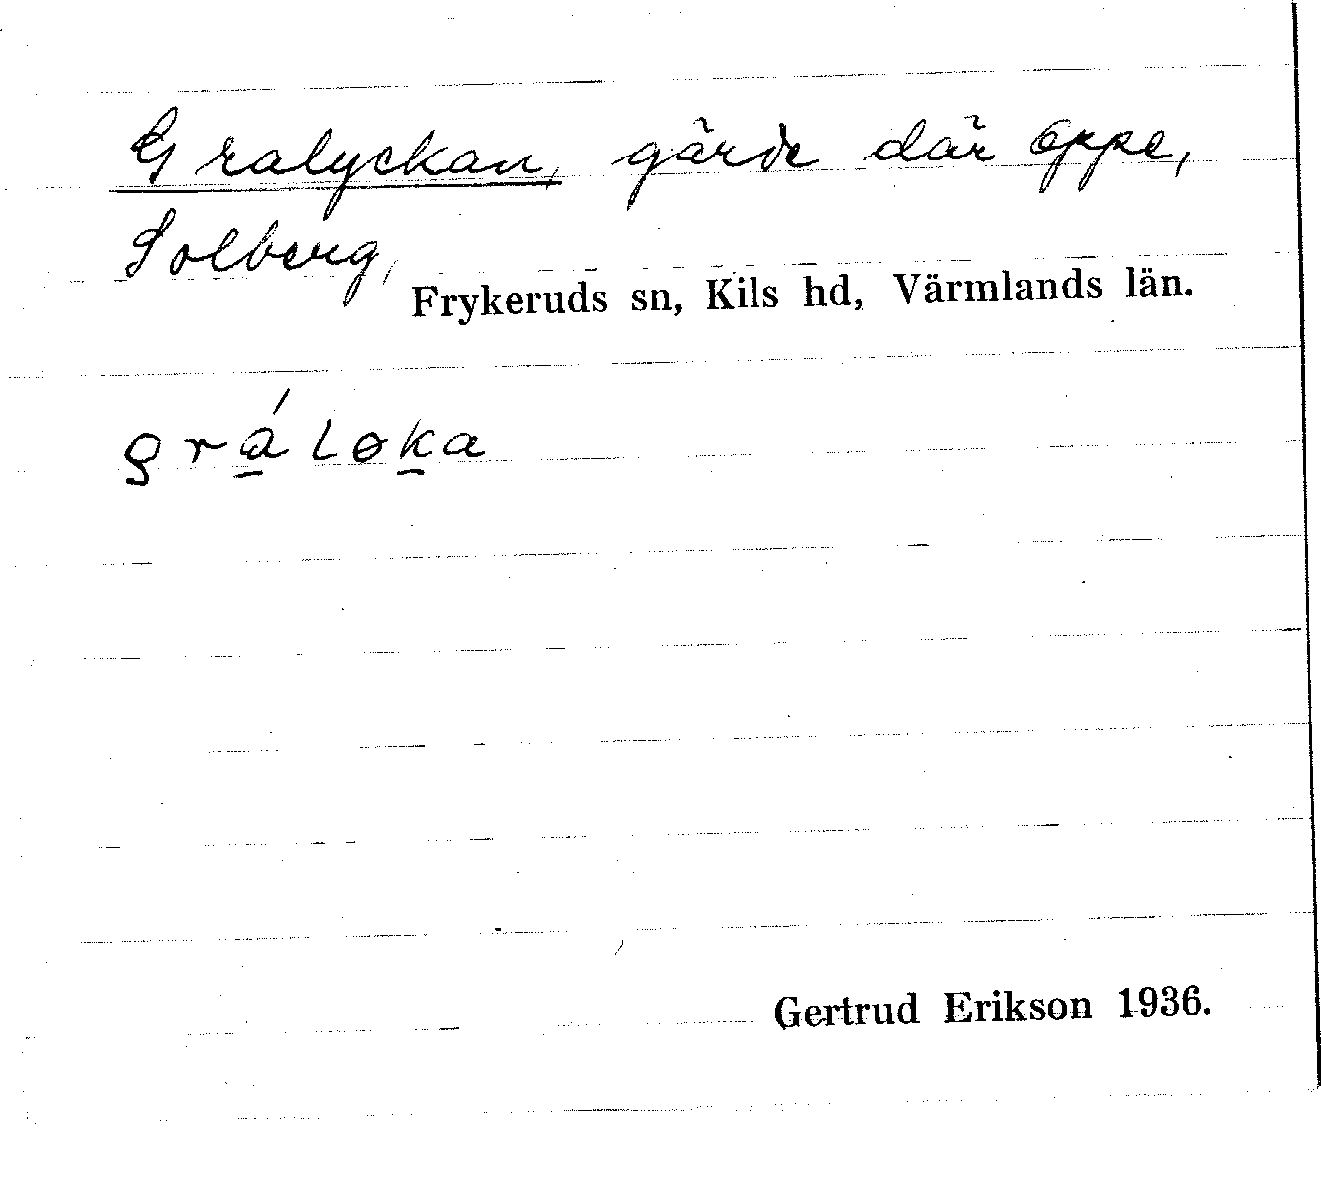 Gralyckan, gärde där oppe,
Solberg,
Frykeruds sn, Kils hd, Värmlands län.
grá̲ løk̲a
Gertrud Erikson 1936.